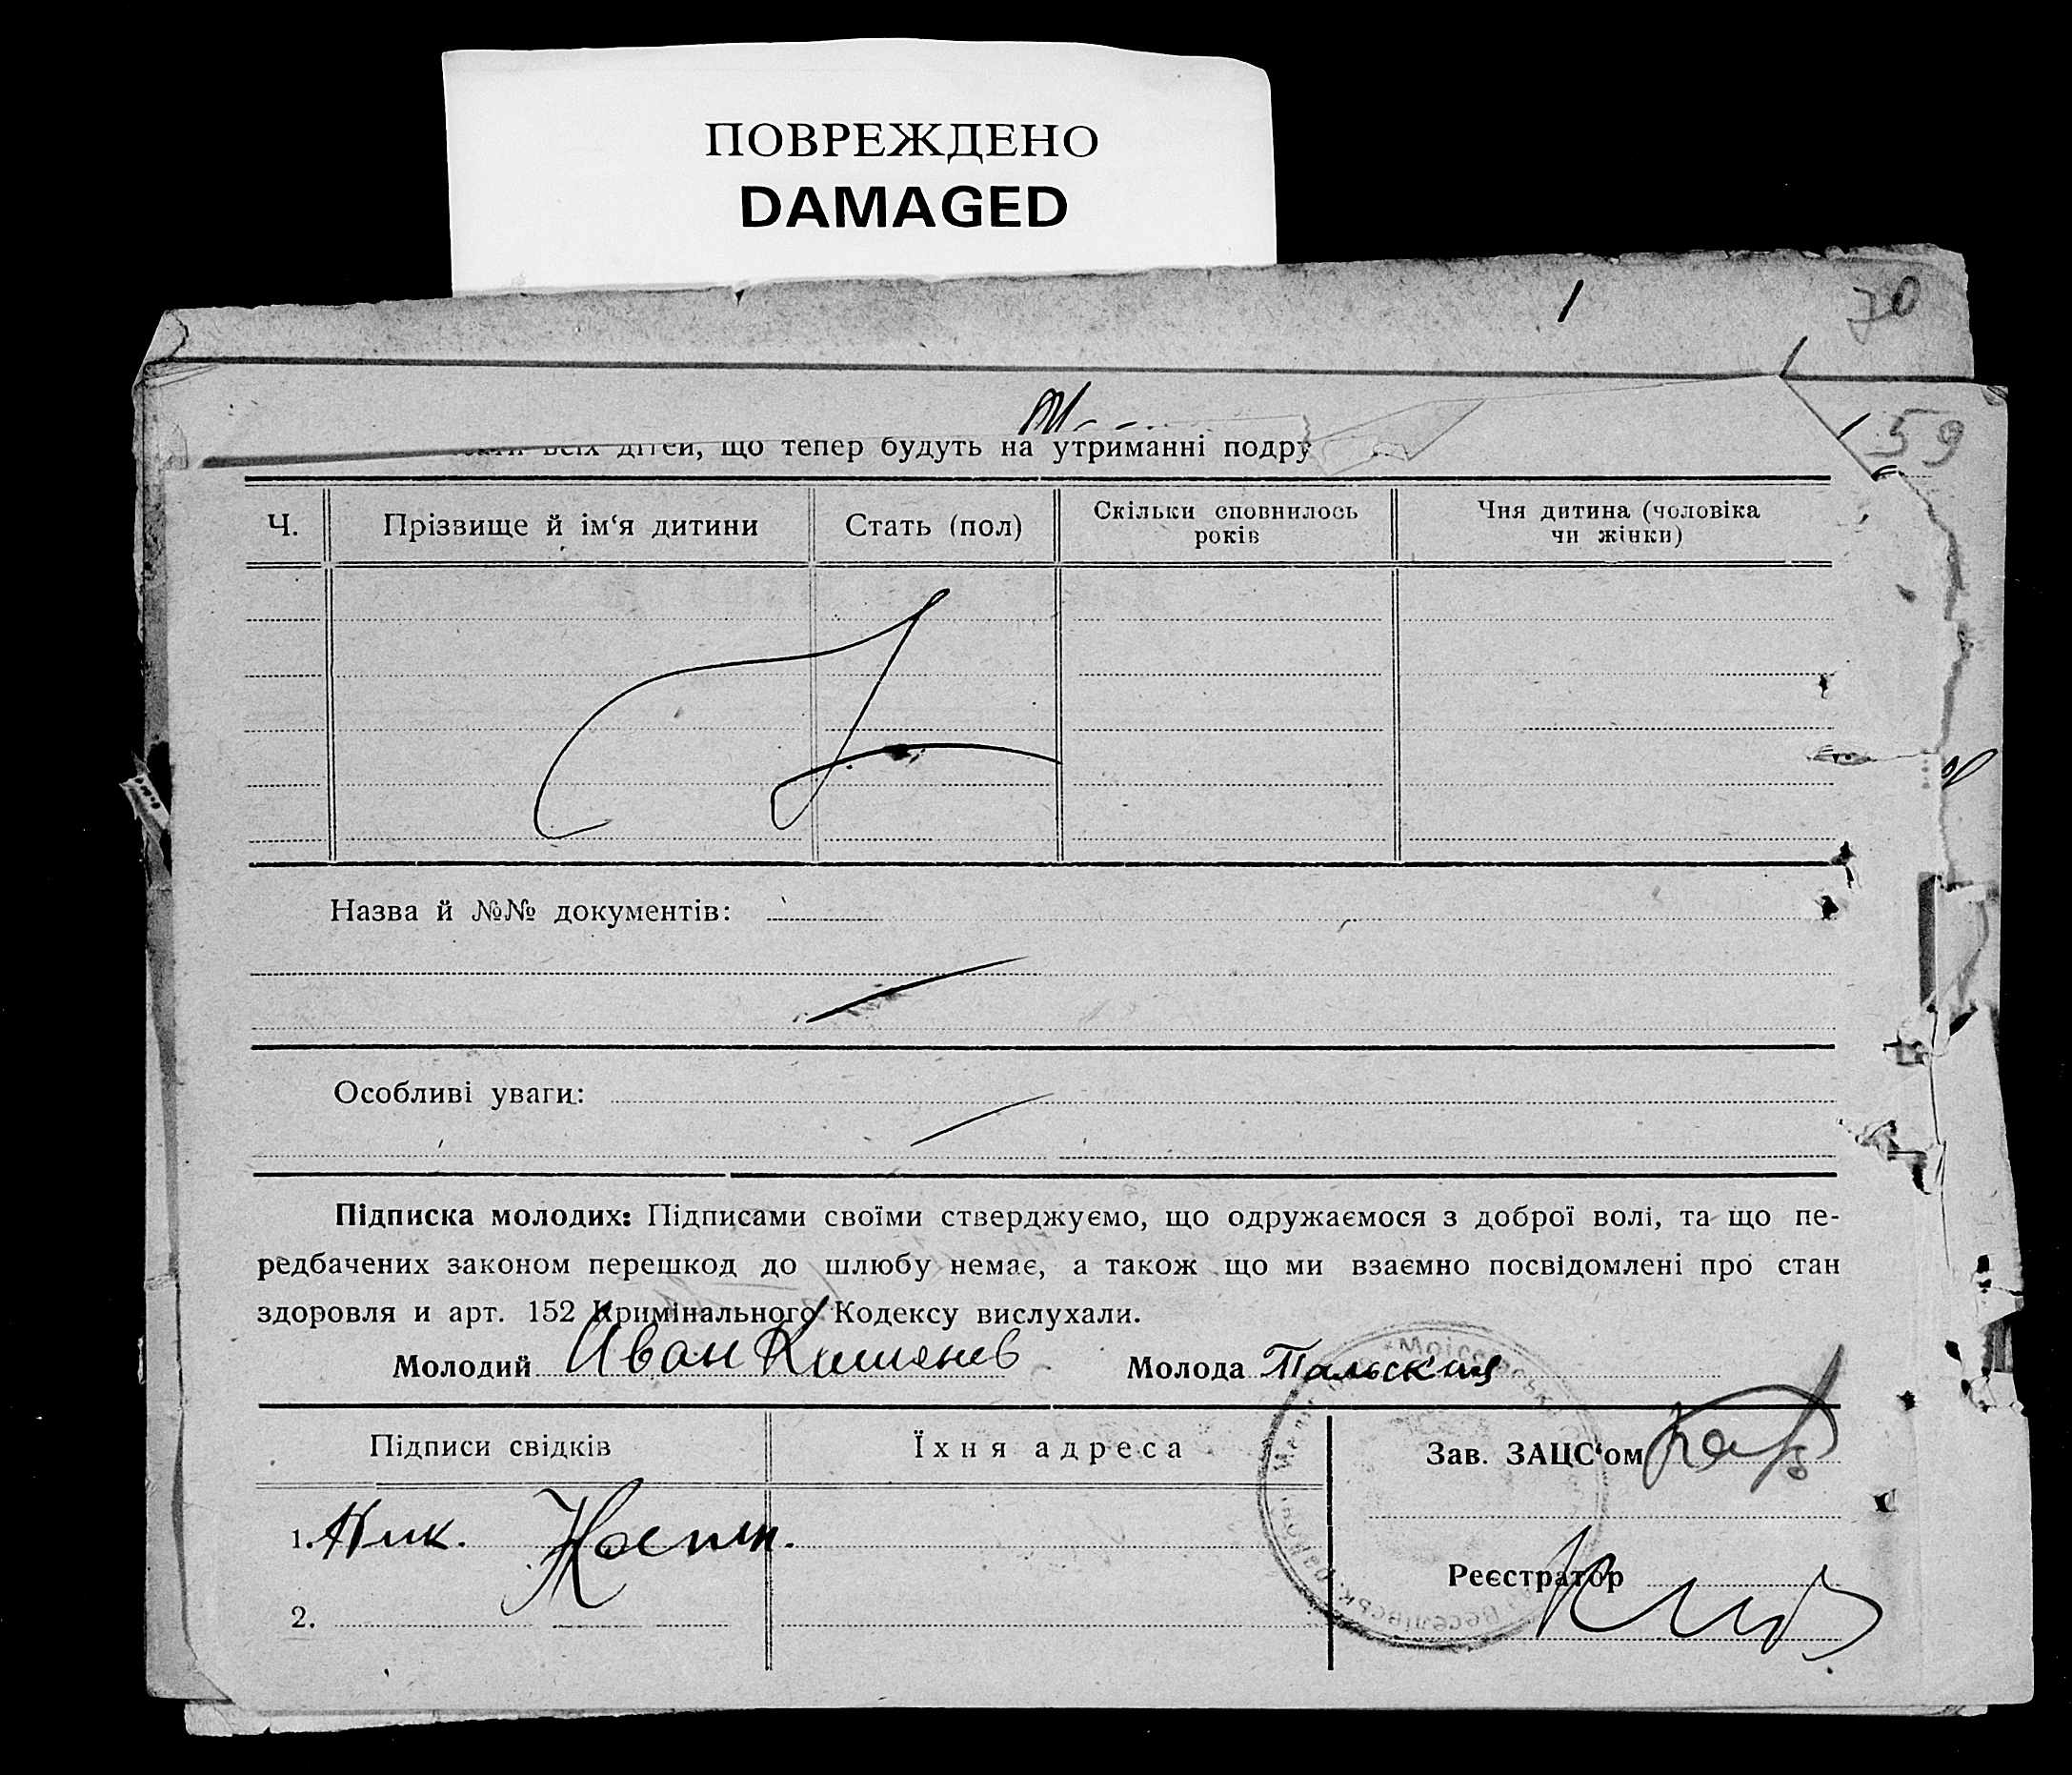 ПОВРЕЖДЕНО
DAMAGED
70
59
всіх дітей, що тепер будуть на утриманні подру
Ч.
Прізвище й ім‘я дитини
Стать (пол)
Скільки сповнилось
років
Чия дитина (чоловіка
чи жінки)
Назва й №№ документів:
Особливі уваги:
Підписка молодих: Підписами своїми стверджуємо, що одружаємося з доброї волі, та що пе-
редбачених законом перешкод до шлюбу немає, а також що ми взаємно посвідомлені про стан
здоровля и арт. 152 Кримінального Кодексу вислухали.
Молодий Иван
Молода Пальская
Підписи свідків
Їхня адреса
Зав. ЗАЦС‘ом
1. Ник.
Реєстратор
2.